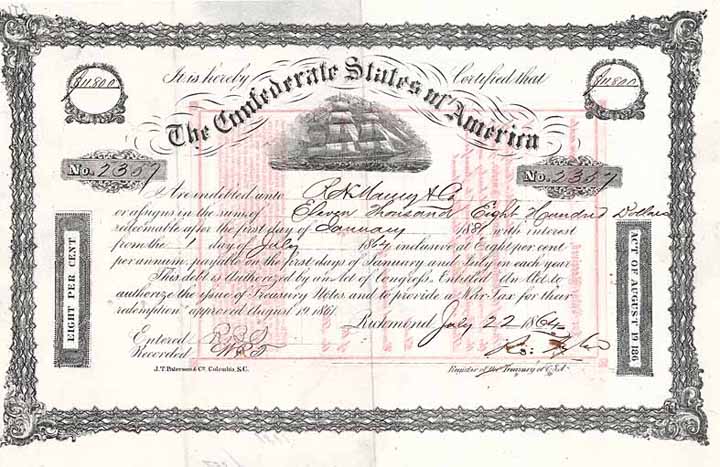 It is hereby Certified that
$11800
$11800
The Confederate States of America
No. 2357
No. 2357
Are indebted unto R. H. Maury & Co
or assigns in the sum of Eleven Thousand Eight Hundred Dollars
redeemable after the first day of January 1881 with interest
from the 1 day of July 1864 inclusive at Eight per cent
per annum, payable on the first days of January and July in each year
This debt is authorized by an Act of Congress Entitled "An Act to
authorize the issue of Treasury Notes and to provide a War Tax for their
redemption" approved August 19, 1861.
Richmond July 22 1864
Entered
Recorded
EIGHT PER CENT
ACT OF AUGUST 19 186
J.T. Paterson & Co. Columbia, S.C.
Register of the Treasury of C.S.A.